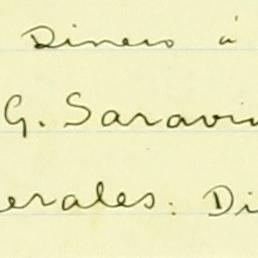 Diners à
G. Saravi
erales: Di